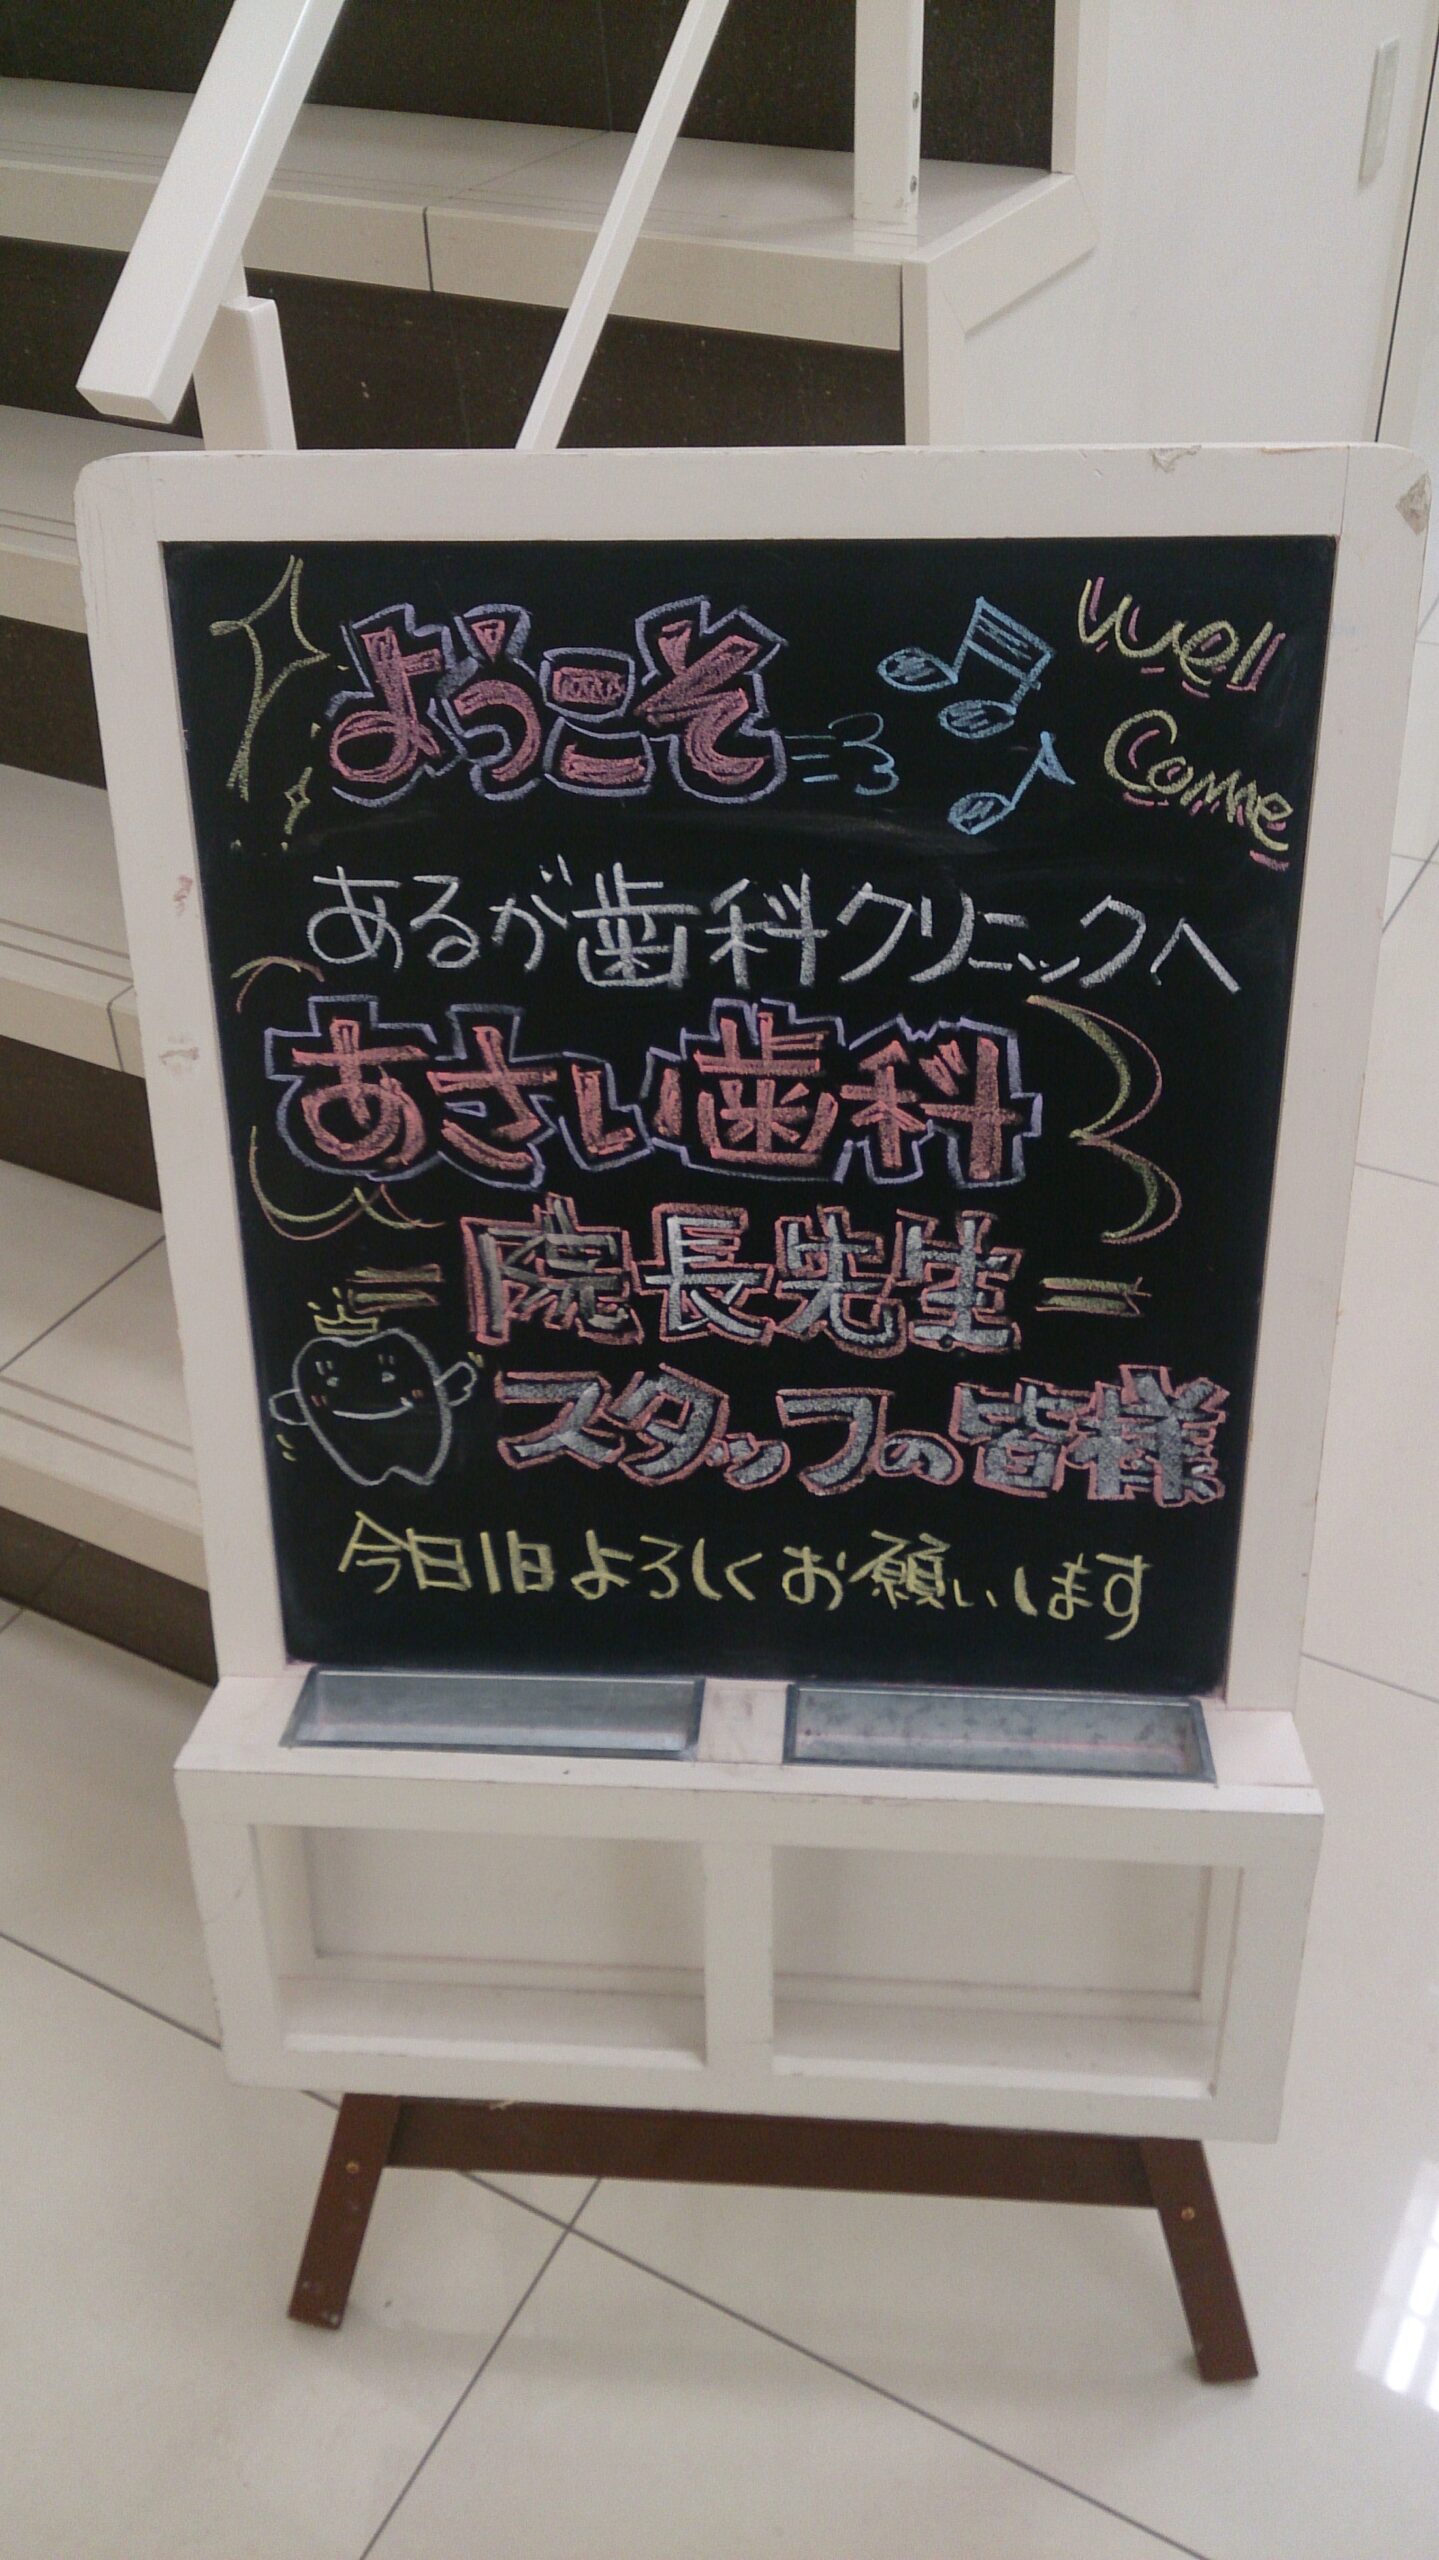 ようこそ
Well
Come
あるが歯科クリニックへ
あさい歯科
院長先生
スタッフの皆様
今日1日よろしくお願いします